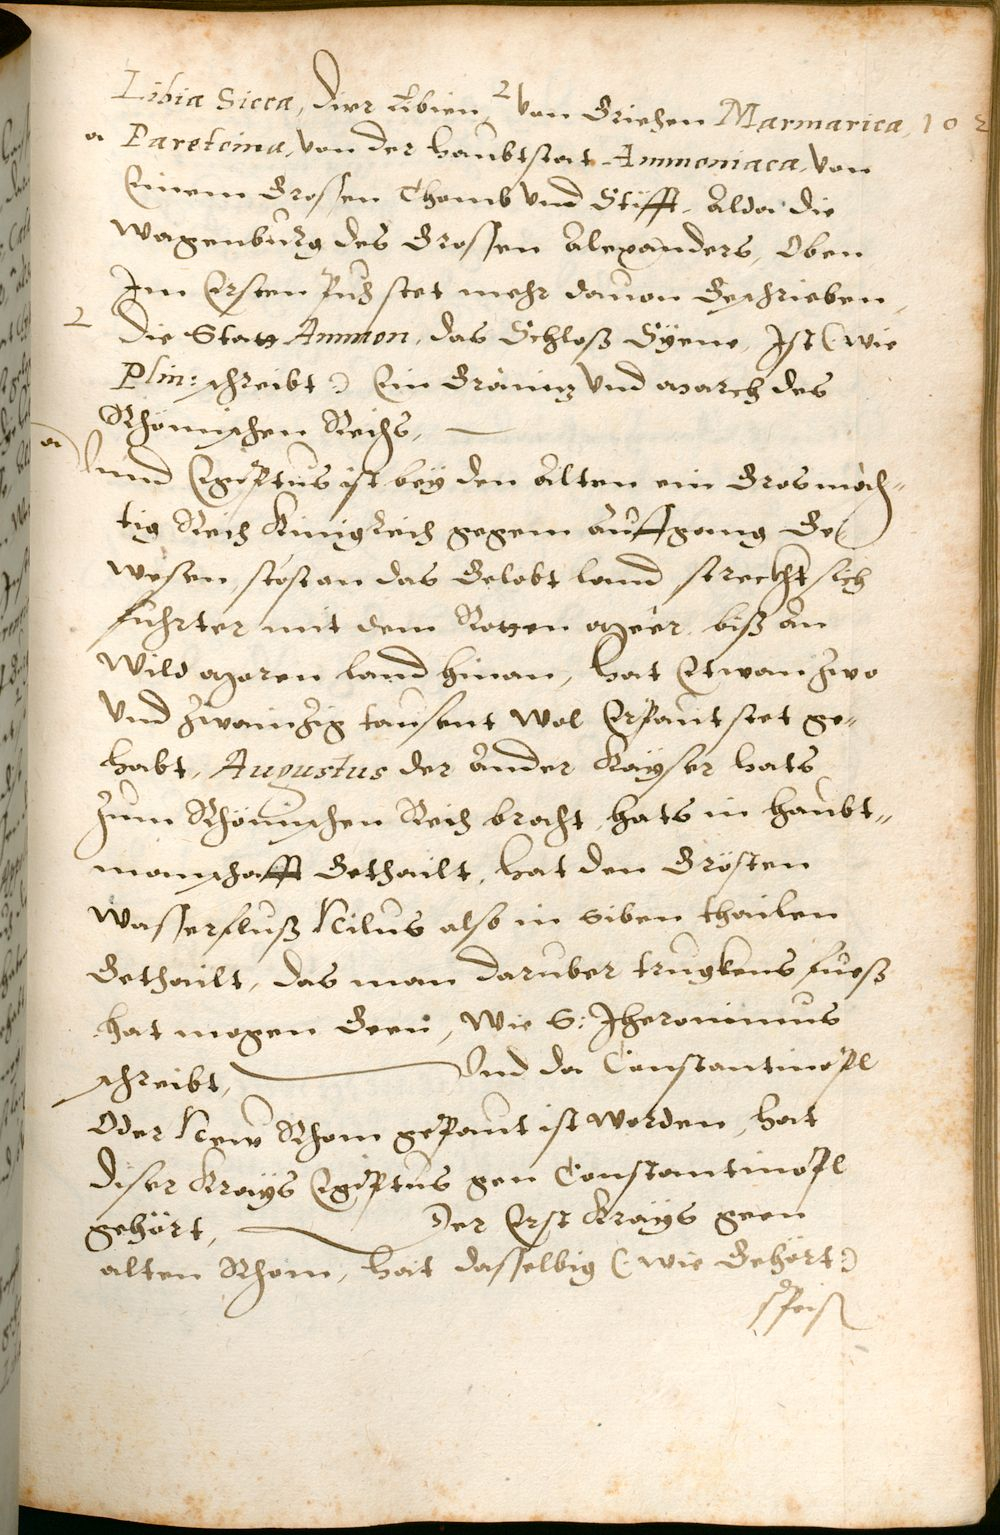 Libia Sicca, Dirr Libien, 2 von Griechen Marmarica, 102
a Paretoina, von der Haubtstat Ammoniaca, von
Einem Grossen Thomb vnd Stifft, Alda die
Wagenburg des Grossen Alexanders, Oben
Im Ersten Puch stet mehr dauon Geschrieben,
2 Die Stat Ammon, das Schloß Syene, Ist (wie
Plin: schreibt:) Ein Gränitz vnd March des
Rhömischen Reichs,
a Vnnd Egiptus ist bey den Alten ein Grosmäch-
tig Reich Kunigreich gegem Auffgang Ge-
wesen, stost an das Gelobt land, streckht sich
fuhrter mit dem Rotten Meer, biß An
Wild Moren land hinan, hat Etwan zwo
Vnd zwainzig tausent Wol Erpaut stet ge-
habt, Augustus der Ander Kayser hats
Zum Rhömischen Reich bracht, hats in Haubt-
manschafft Gethailt, hat den Grösten
Wasserfluß Nilus also in Siben thailen
Gethailt, das man daruber trugkens fueß
hat mogen Geen, Wie S: Iheronimus
schreibt, Vnd da Constantinopl
Oder New Rhom gepaut ist worden, hat
Diser Krays Egiptus gen Constantinopl
gehört, Der Erst Krays geen
alten Rhom, hat dasselbig (:wie Gehört:)
speist